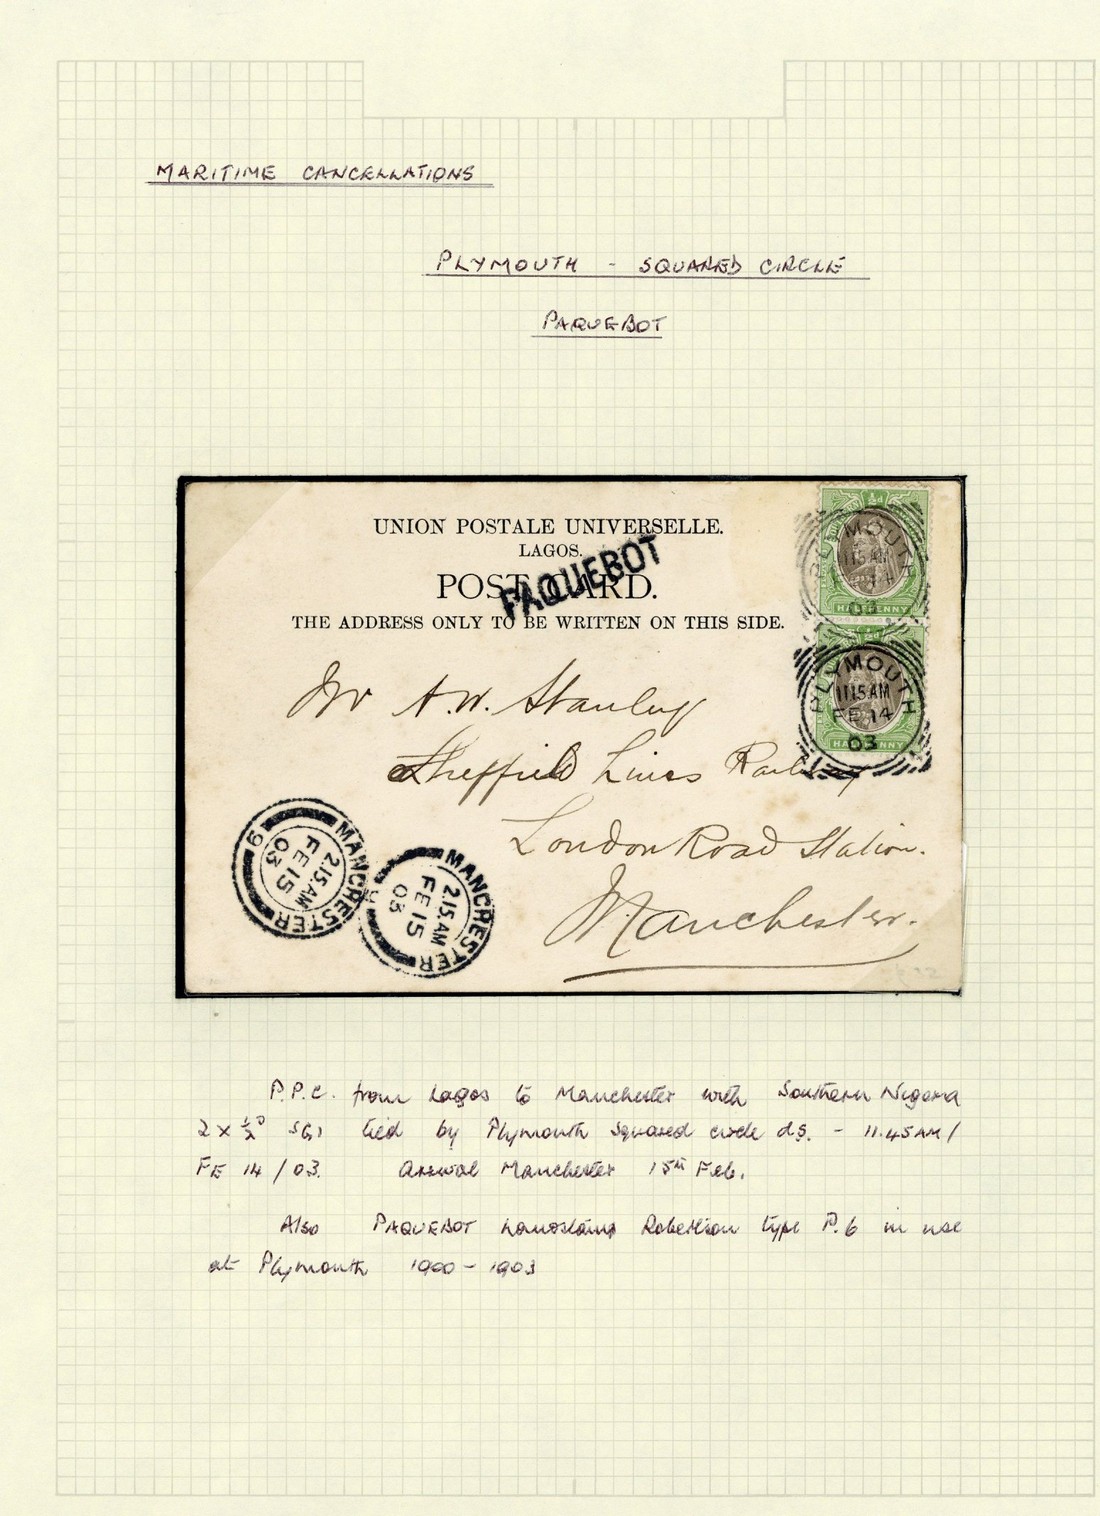 MARITIME CANCELLATIONS
PLYMOUTH - SQUARED CIRCLE
PAQUEBOT
UNION POSTALE UNIVERSELLE.
LAGOS.
POST CARD.
PAQUEBOT
THE ADDRESS ONLY TO BE WRITTEN ON THIS SIDE.
½d
HALFPENNY
PLYMOUTH
1115AM
½d
HALFPENNY
PLYMOUTH
1115AM
FE 14
03
Mr A.W. Stanley
Sheffield Lines Railway
London Road Station.
Manchester.
MANCHESTER
2.15.AM
FE 15
03
6
MANCHESTER
2.15.AM
FE 15
03
P.P.C. from Lagos to Manchester with Southern Nigeria
2 x ½D SG1 tied by Plymouth squared circle d.s. - 11.45AM/
FE 14/03. Arrival Manchester 15th Feb.
Also PAQUEBOT handstamp Robertson type P.6 in use
at Plymouth 1900-1903